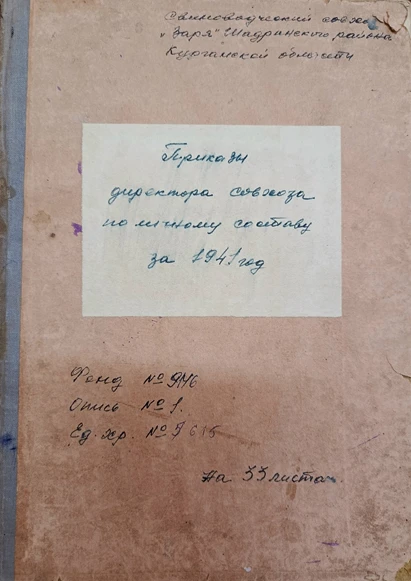 Свиноводческий совхоз
"Заря" Шадринского района
Курганской области
Приказы
директора совхоза
по личному составу
за 1941 год
Фонд № 946
Опись № 1.
Ед. хр. №
На 33 листах.